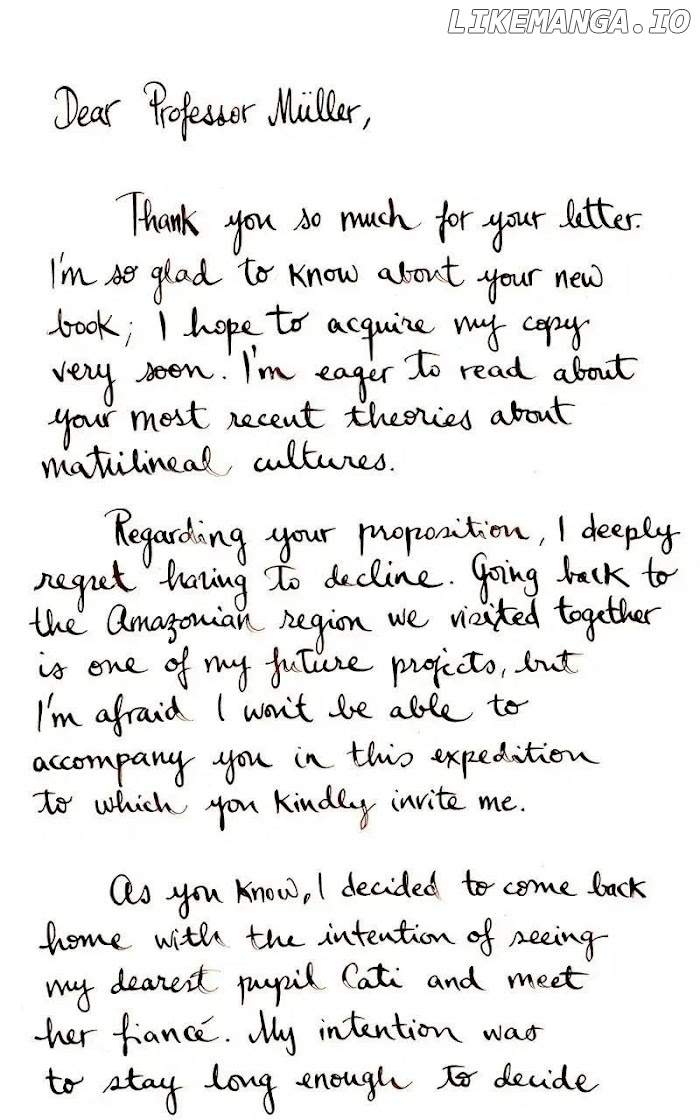 LIKEMANGA.IO
Dear Professor Müller,
Thank you so much for your letter.
I'm so glad to know about your new
book; I hope to acquire my copy
very soon. I'm eager to read about
your most recent theories about
matrilineal cultures.
Regarding your proposition, I deeply
regret having to decline. Going back to
the Amazonian region we visited together
is one of my future projects, but
I'm afraid I won't be able to
accompany you in this expedition
to which you kindly invite me.
As you know, I decided to come back
home with the intention of seeing
my dearest pupil Cati and meet
her fiancé. My intention was
to stay long enough to decide